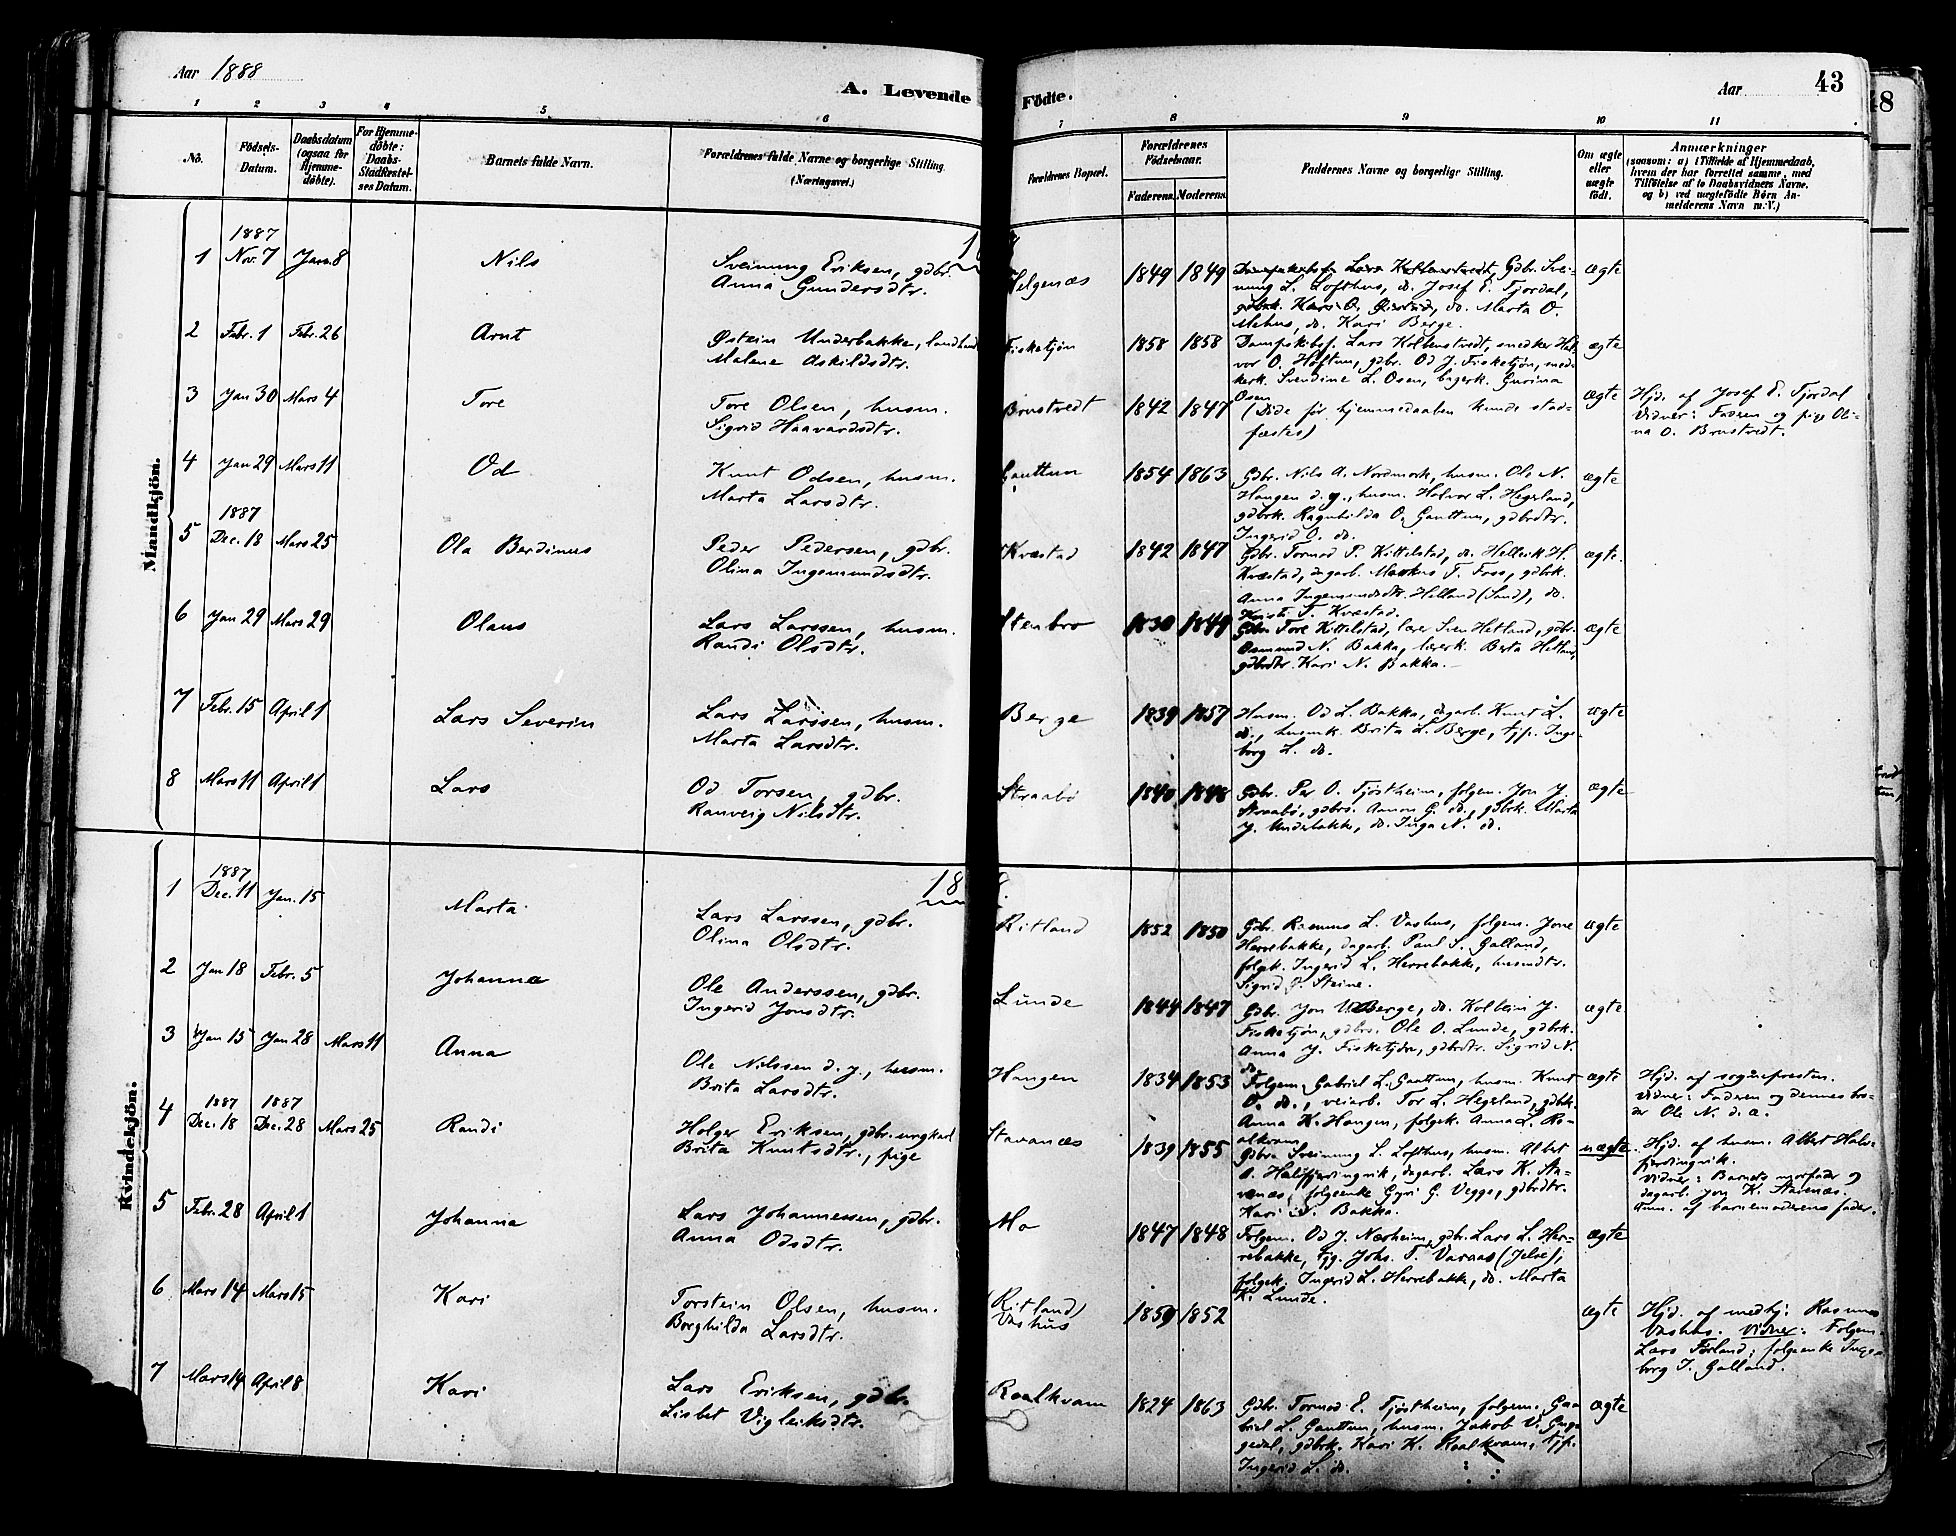 Aar 1888
A. Levende Fødte.
Aar 43
48
1 2 3 4 5 6 7 8 9 10 11
No.
Fødsels-Datum.
Daabsdatum (ogsaa for Hjemmedøbte).
For Hjemmedøbte: Daabs-Stadfæstelses Datum.
Barnets fulde Navn.
Forældrenes fulde Navne og borgerlige Stilling. (Næringsvei.)
Forældrenes Bopæl.
Forældrenes Fødselsaar.
Faderens. Moderens.
Faddernes Navne og borgerlige Stilling.
Om ægte eller uægte født.
Anmærkninger
(saasom: a) i Tilfælde af Hjemmedaab,
hvem der har forrettet samme, med
Tilføielse af to Daabsvidners Navne.
og b) ved uægtefødte Børn An-
melderens Navn m. V.)
Mandkjøn.
1887
1 Nov. 7 Jan. 8 Nils
Sveinung Eriksen, gdbr.
Anna Gundersdtr.
Helgenæs 1849 1849
Gdbr. Svei-
nung L. Lofthus, do. Josef E. Tjordal,
do. Marta O.
Mehus, do. Kari Berge.
ægte
2 Febr. 1 Febr. 26 Arnt
Østein Underbakke,
Malene Askildsdtr.
Fisketjøn 1858 1858
Dampskibsf. Lars Kolbenstvedt, snedker Hal-
vor O. Høftun, gdbr. Od J. Fisketjøn,
Svendine L. Osen, bagerk. Gurina
Osen
ægte
3 Jan 30 Mars 4 Tore
Tore Olsen, husm.
Sigrid Haavardsdtr.
Brustvedt 1842 1847
(Døde før hjemmedaaben kunde stad-
fæstes)
ægte
Hjd. af Josef E. Tjordal
Vidner: Faderen og pige Oli-
na O. Brustvedt.
4 Jan 29 Mars 11 Od
Knut Odsen, husm.
Marta Larsdtr.
Gauttun 1854 1863
Gdbr. Nils A. Nordmork, husm. Ole N.
Haugen d. y., husm. Halvor L. Hegeland,
gdbrk. Ragnhilda O. Gauttun, gdbrdtr.
Ingerid O. do.
ægte
1887
5 Dec. 18 Mars 25 Ola Berdinus
Peder Pedersen, gdbr.
Olina Ingemundsdtr.
Kvæstad 1842 1847
Gdbr. Tormod P. Kittelstad, do. Helleik H.
Kvæstad, dagarb. Markus T. Foss, gdbrk.
Anna Ingemundsdtr. Helland (Sand), do.
Kristi T. Kvæstad.
ægte.
6 Jan 29 Mars 29 Olaus
Lars Larssen, husm.
Randi Olsdtr.
Stenbro 1830 1849
Gdbr. Tore Kittelstad, lærer Sven Hetland, gdbr.
Osmund N. Bakka, lærerk. Berta Hetland,
gdbrdtr. Kari N. Bakka.
ægte
7 Febr. 15 April 1 Lars Severin
Lars Larssen, husm.
Marta Larsdtr.
Berge 1839 1857
Husm. Od L. Bakka, dagarb. Knut L.
do., husmk. Brita L. Berge, tjp. Inge-
borg L. do.
ægte
8 Mars 11 April 1 Lars
Od Torsen, gdbr.
Ranveig Nilsdtr.
Straabø 1840 1848
Gdbr. Per O. Tjøstheim, folgem. Jon J.
Straabø, gdbrs. Amon G. do., gdbrk. Marta
J. Underbakke, do. Inga N. do.
ægte
Kvindekjøn.
1888.
1887
1 Dec. 11 Jan. 15 Marta
Lars Larssen, gdbr.
Olina Olsdtr.
Ritland 1852 1850
Gdbr. Rasmus L. Vashus, folgem. Jone
Herrebakke, dagarb. Paul S. Galland,
folgek. Ingerid L. Herrebakke, husmdtr.
Sigrid J. Steine.
ægte
2 Jan 18 Febr. 5 Johanna
Ole Anderssen, gdbr.
Ingerid Jonsdtr.
Lunde 1844 1847
Gdbr. Jon Berge, do. Kolbein J.
Fisketjøn, gdbrs. Ole O. Lunde, gdbrk.
Anna J. Fisketjøn, gdbrdtr. Sigrid N.
do.
ægte
3 Jan 15 Jan 28 Mars 11 Anna
Ole Nilssen d. y., husm.
Brita Larsdtr.
Haugen 1834 1853
Folgem. Gabriel L. Gauttun, husm. Knut
O. do., veiarb. Tor L. Hegeland, gdbrk.
Anna K. Haugen, folgek. Anna L. Ro-
alkvam
ægte
Hjd. af sognepresten.
Vidner: Faderen og dennes bro-
der Ole N. d. æ.
1887 1887
4 Dec. 18 Dec. 28 Mars 25 Randi
Holger Eriksen, gdbr. ungkarl
Brita Knutsdtr., pige
Stavanæs 1839 1855
Gdbr. Sveinung L. Lofthus, husm. Albert
O. Halsfjordingvik, dagarb. Lars K. Sta-
vanæs, folgeenke Gyri G. Vegge, gdbrdtr.
Kari N. Bakka.
uægte.
Hjd. af husm. Albert Hals-
fjordingvik.
Vidner: Barnets morfader og
dagarb. Jon K. Stavenæs.
Anm. af barnemoderens fader.
5 Febr. 28 April 1 Johanna
Lars Johannessen, gdbr.
Anna Odsdtr.
Mo 1847 1848
Folgem. Od J. Næsheim, gdbr. Lars L. Her-
rebakke, tjg. Johs. T. Varaas (Jelse),
folgek. Ingerid L. Herrebakke, do. Marta
K. Lunde.
ægte
6 Mars 14 Mars 15 Kari
Torstein Olsen, husm.
Borghilda Larsdtr.
(Ritland)
Vashus 1859 1852
ægte
Hjd. af medhj. Rasmus
Vashus. Vidner: Folgem.
Lars Førland; folgeenke Inge-
borg T. Galland.
7 Mars 14 April 8 Kari
Lars Eriksen, gdbr.
Lisbet Vigleiksdtr.
Roalkvam 1824 1863
Gdbr. Tormod E. Tjøstheim, folgem. Ga-
briel L. Gauttun, husm. Jakob V. Guge-
gedal, gdbrk. Kari K. Roalkvam, tjp.
Ingerid L. do.
ægte